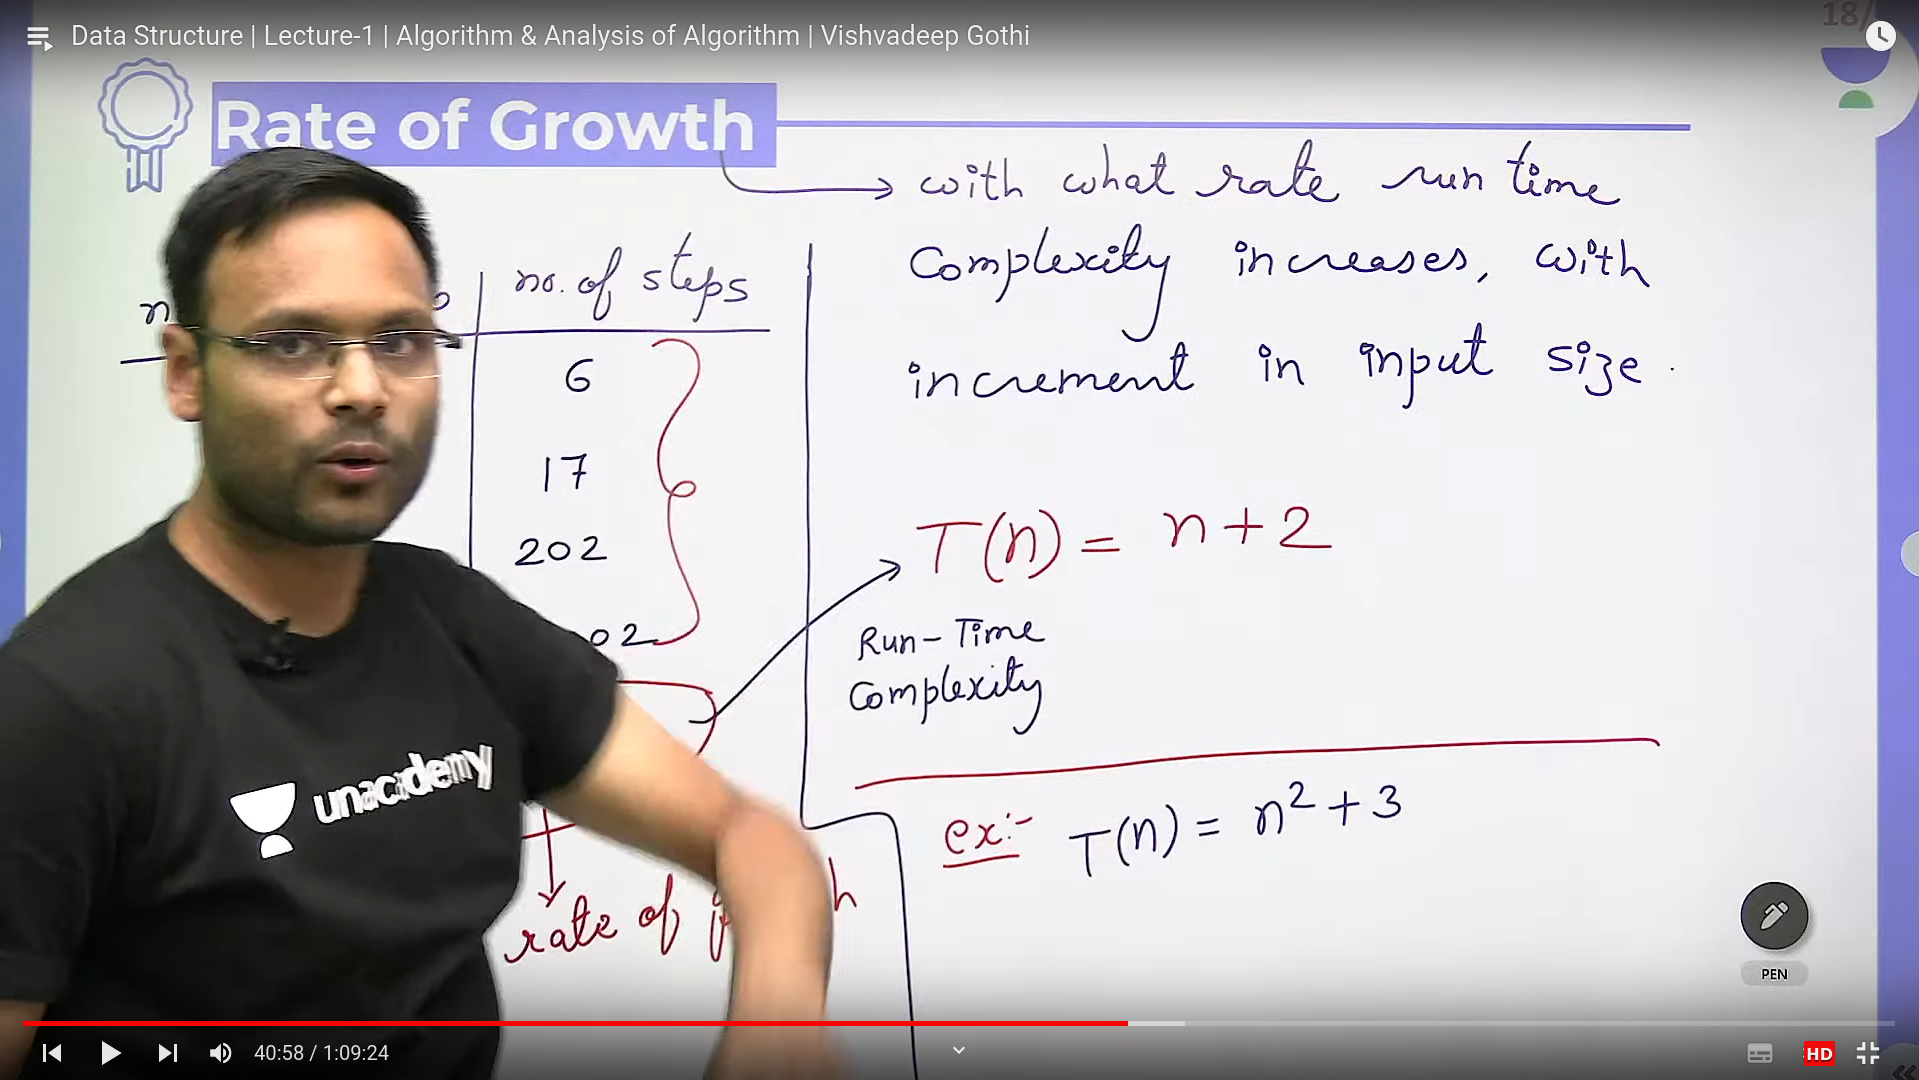 18/
Data Structure | Lecture-1 | Algorithm & Analysis of Algorithm | Vishvadeep Gothi
Rate of Growth
with what rate run time
Complexity increases, with
increment in input size.
n
no. of steps
6
17
202
02
T(n) = n+2
Run-Time
Complexity
ex:- T(n) = n²+3
rate of
unacademy
PEN
40:58 / 1:09:24
HD